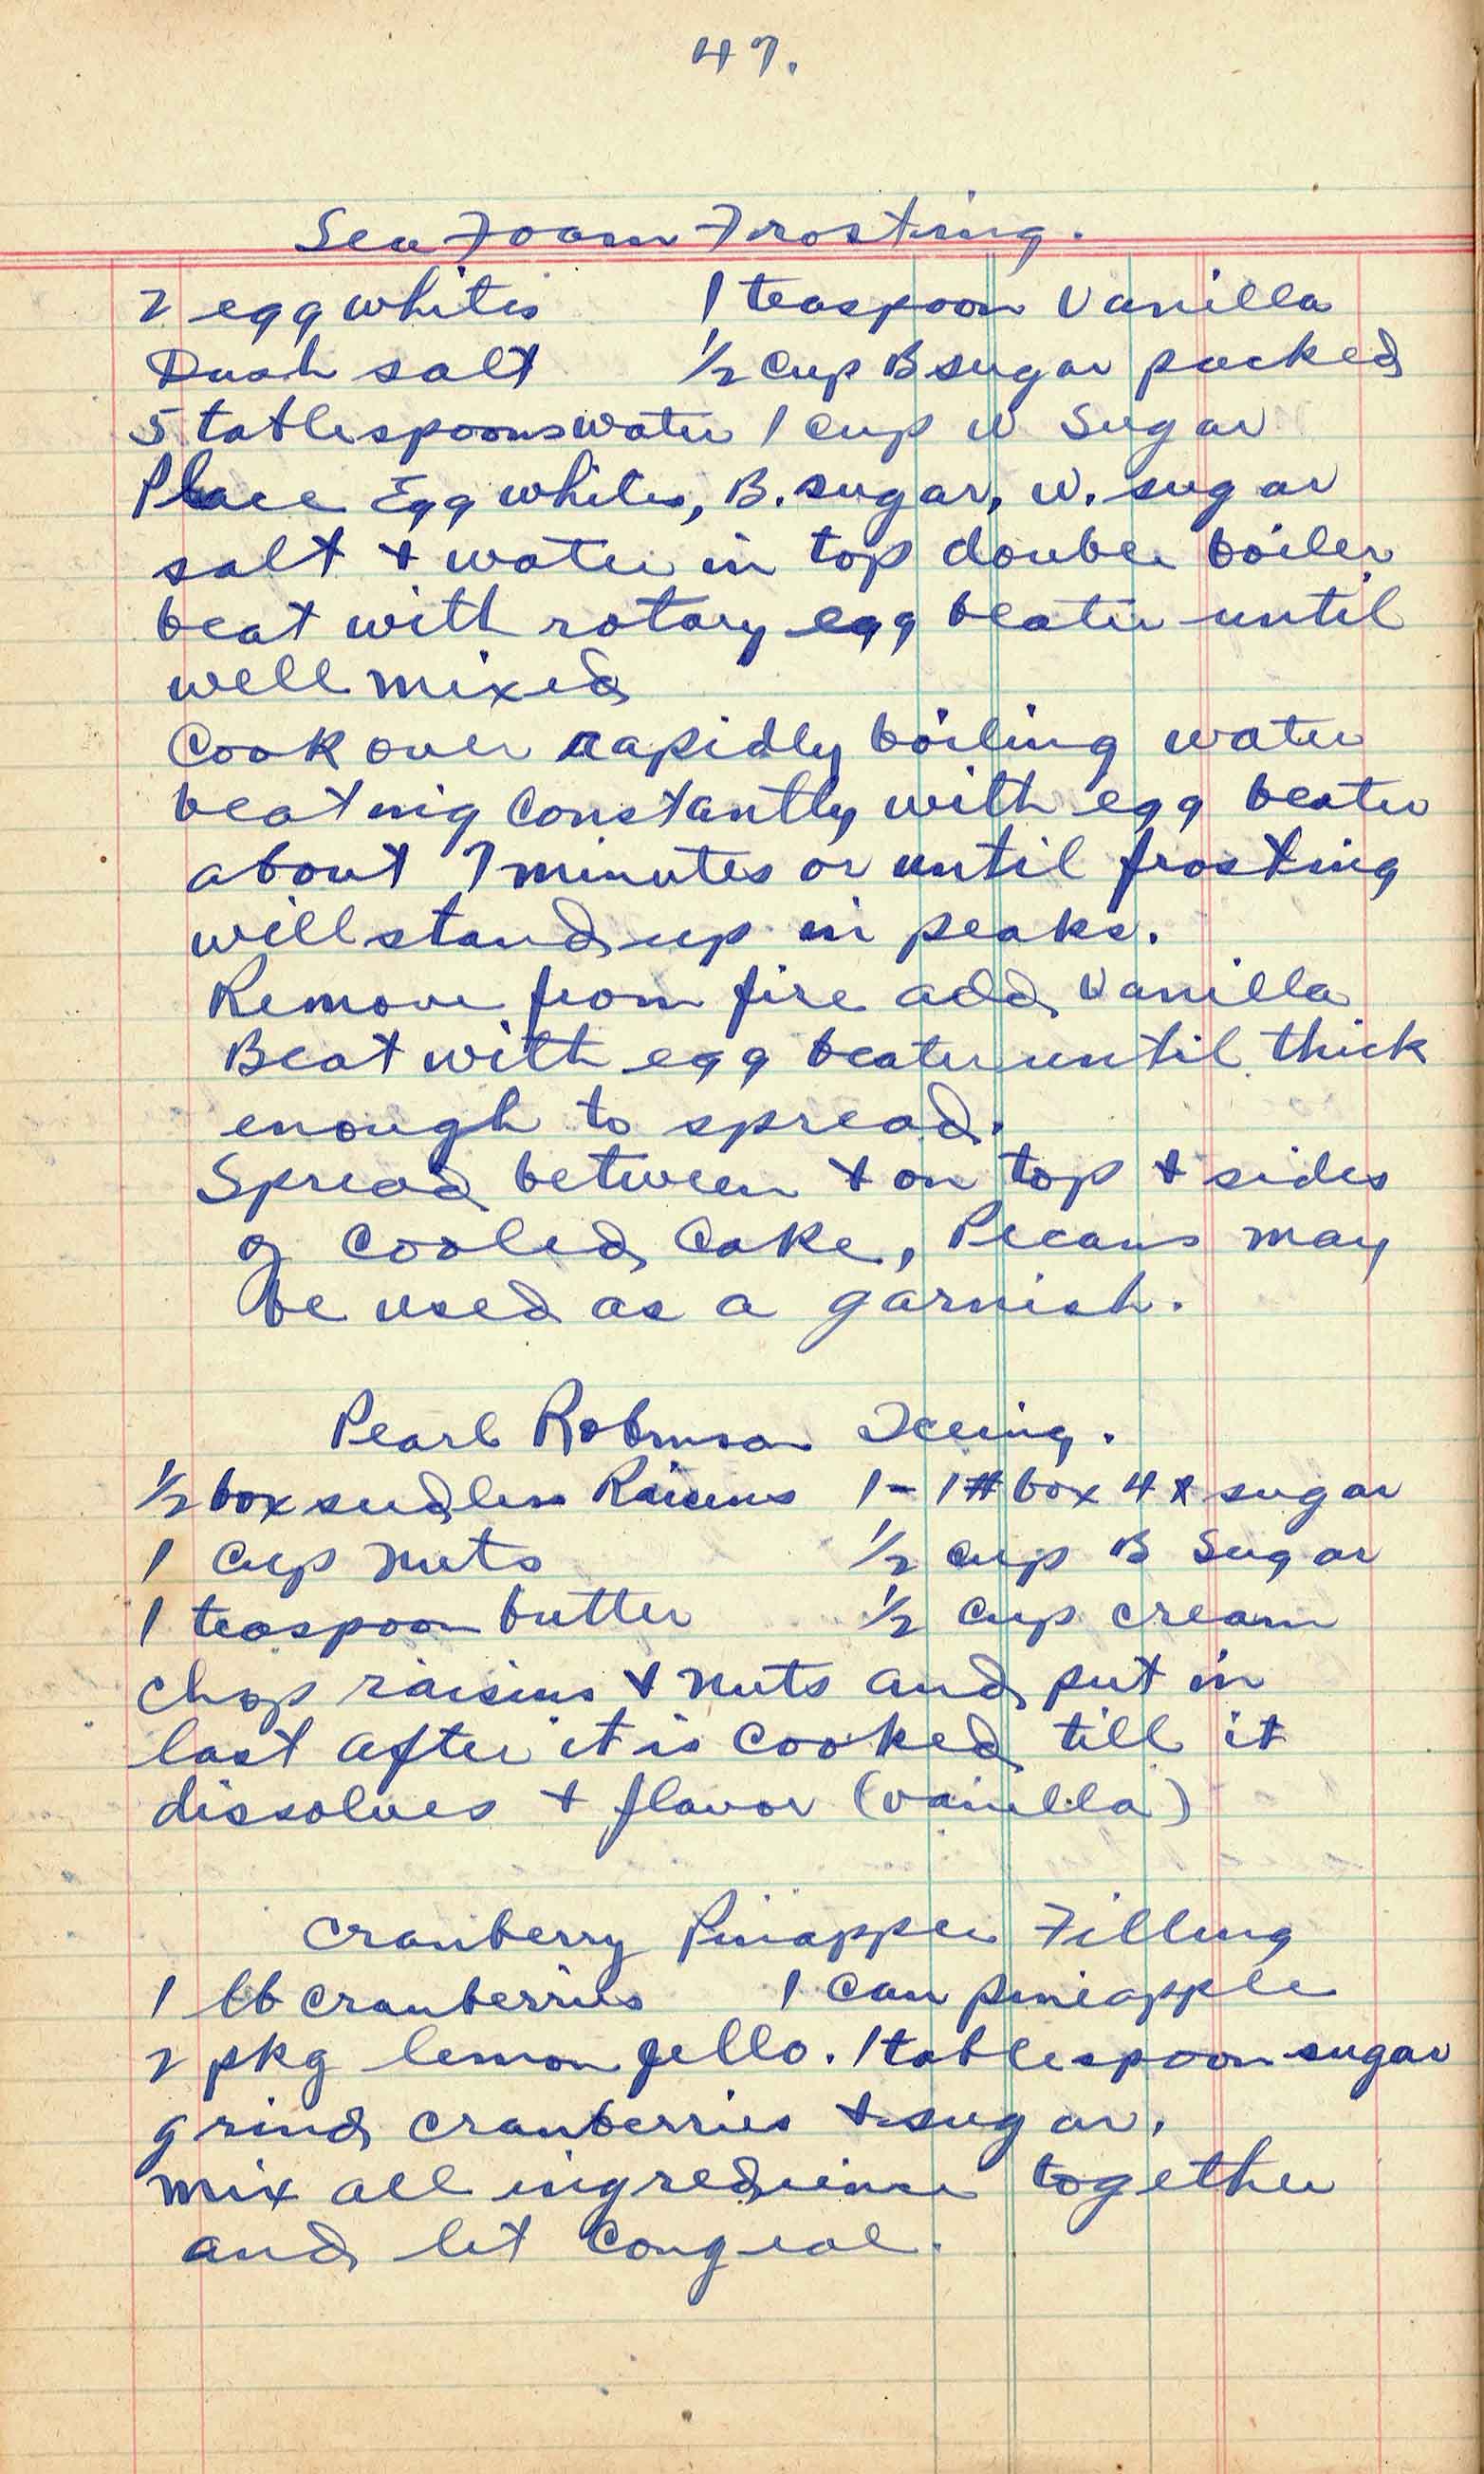 47.
Sea Foam Frosting.
2 egg whites 1 teaspoon Vanilla
Dash salt 1/2 cup B sugar packed
5 tablespoons water 1 cup w Sugar
Place Egg whites, B. sugar, w. sugar
salt + water in top double boiler
beat with rotary egg beater until
well mixed
Cook over rapidly boiling water
beating constantly with egg beater
about 7 minutes or until frosting
will stand up in peaks.
Remove from fire add Vanilla
Beat with egg beater until thick
enough to spread.
Spread between + on top + sides
of cooled cake, Pecans may
be used as a garnish.
Pearl Robinson Iceing.
1/2 box seedless Raisens 1-1# box 4X sugar
1 cup nuts 1/2 cup B Sugar
1 teaspoon butter 1/2 cup cream
chop raisins + nuts and put in
last after it is cooked till it
dissolves + flavor (vanilla)
Cranberry Pineapple Filling
1 lb cranberries 1 can pineapple
2 pkg lemon jello. 1 tablespoon sugar
grind cranberries + sugar.
mix all together
and let congeal.